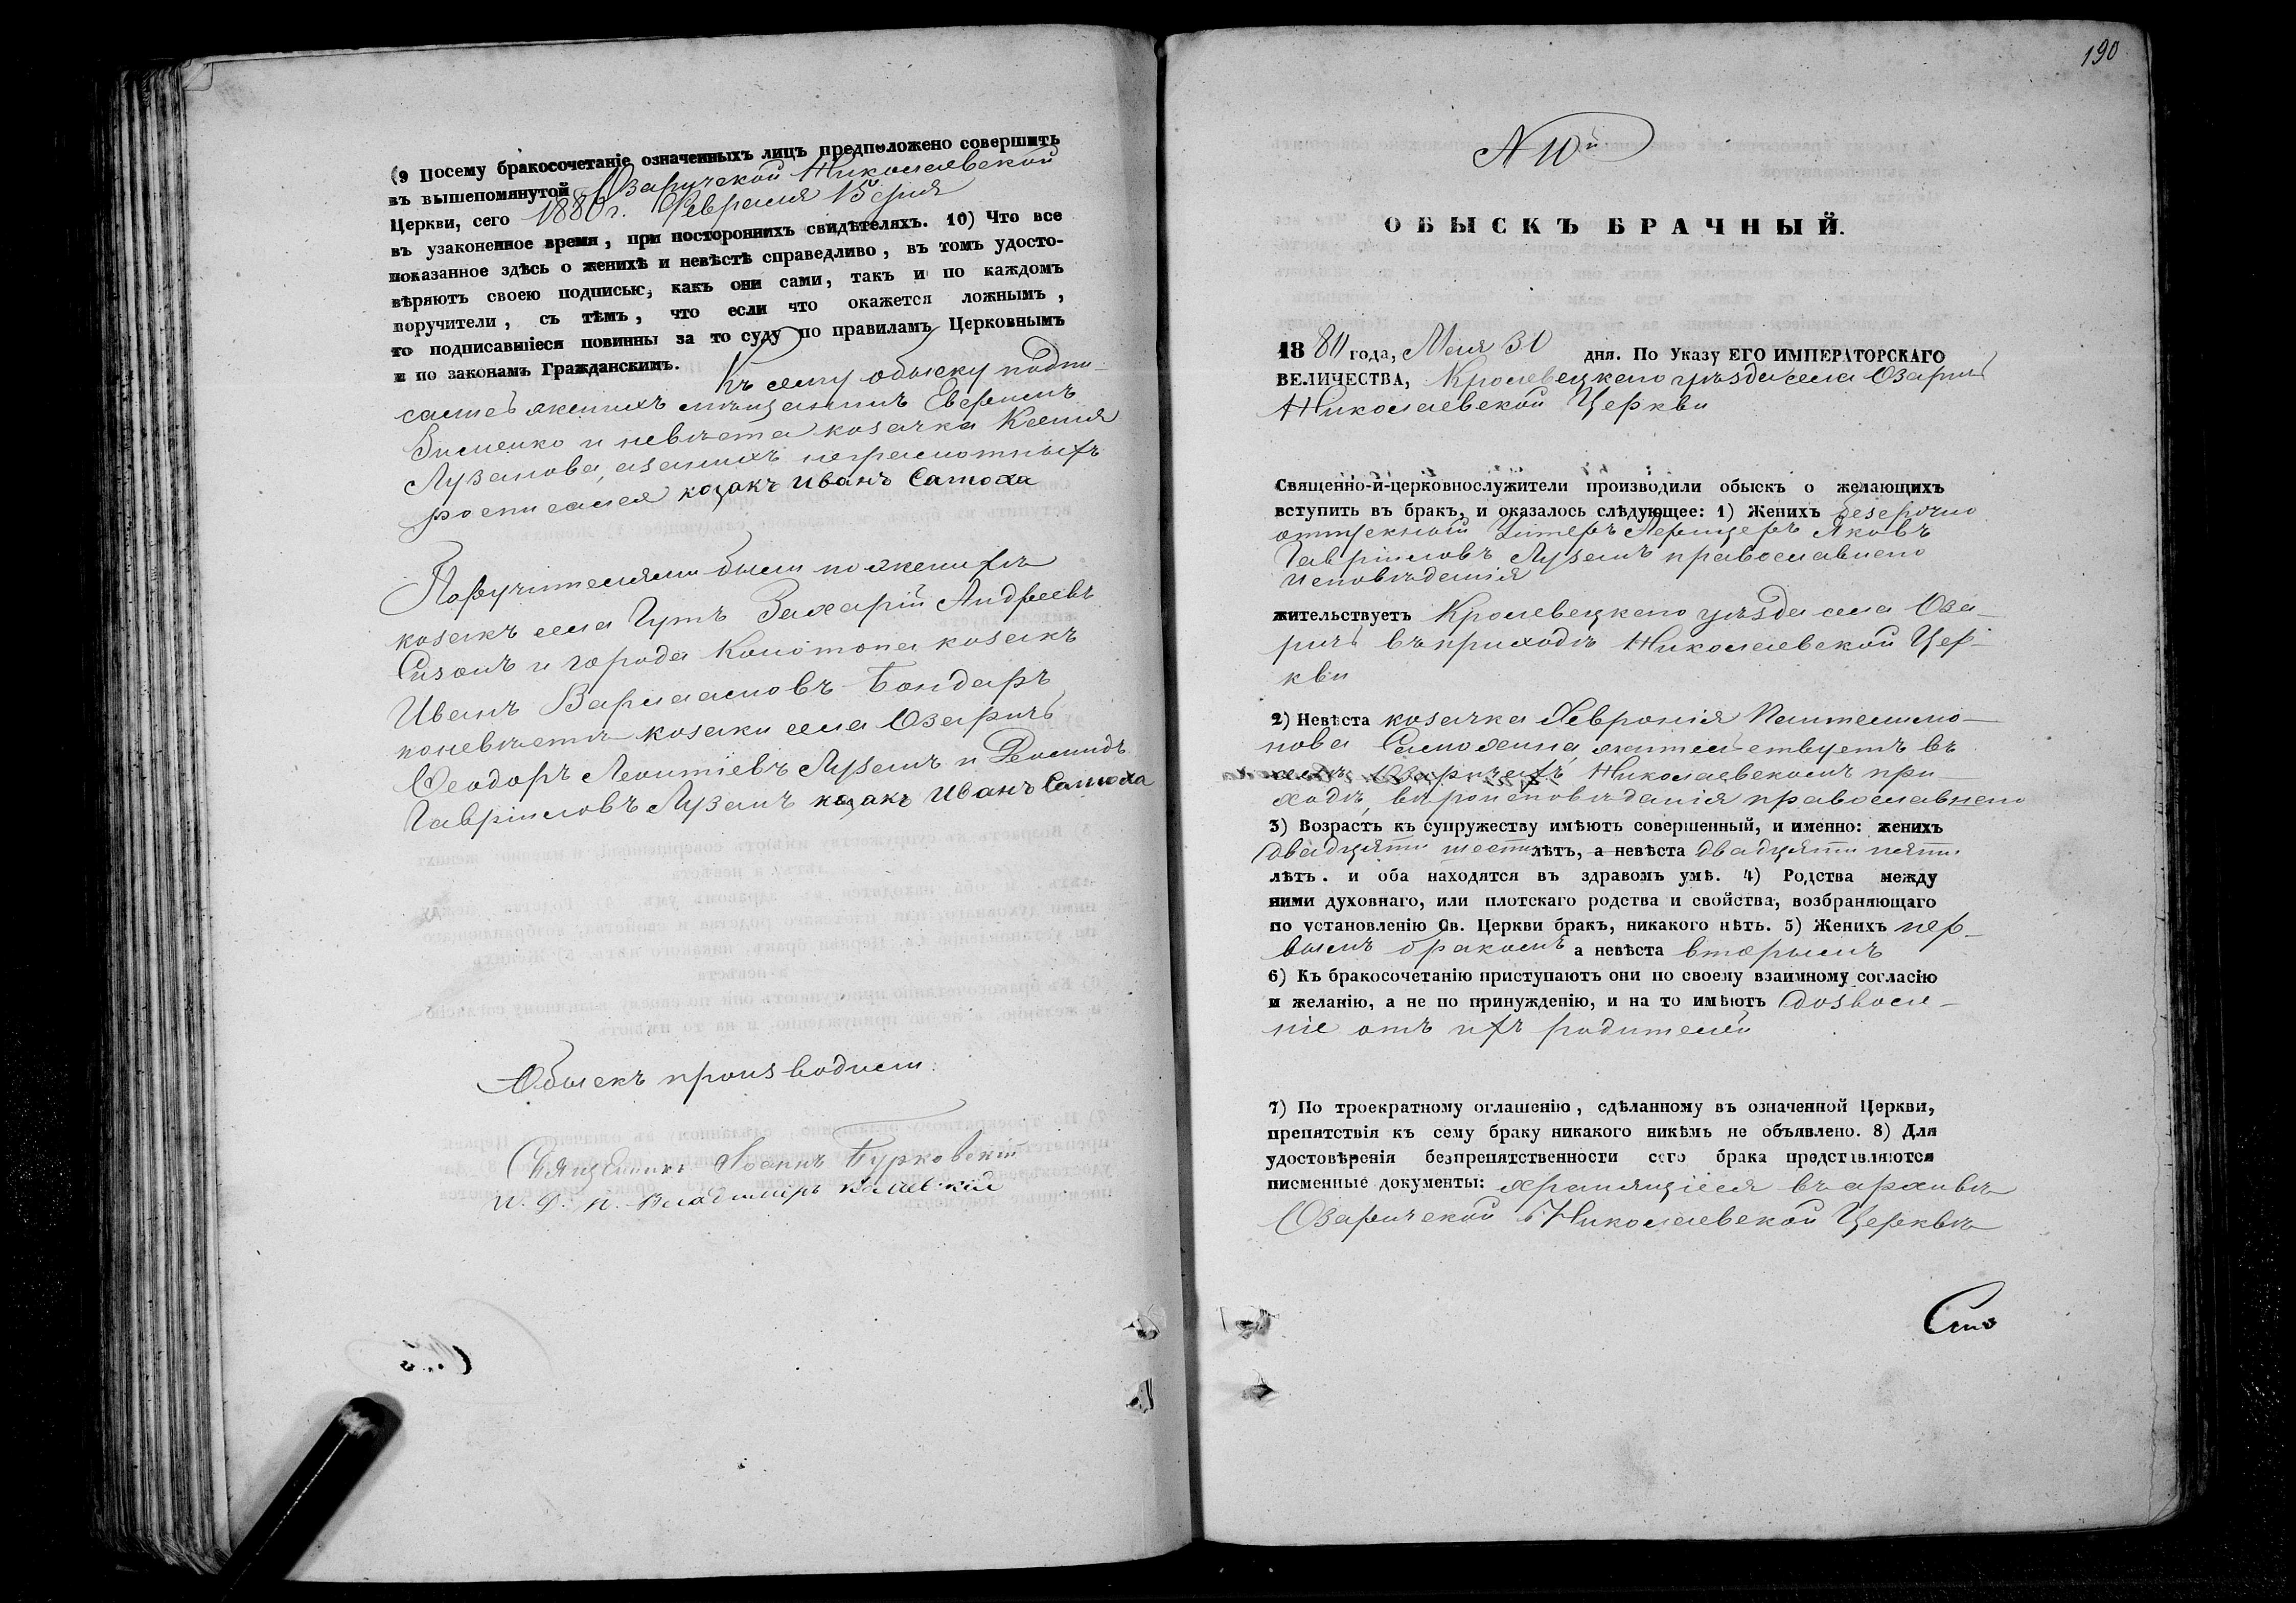 (9 Посему бракосочетаніе означенныхъ лицъ предположено совершить
въ вышепомянутой Озаричской Николаевской
Церкви, сего 1880 г. Февраля 15 дня
въ узаконенное время, при постороннихъ свидѣтеляхъ. 10) Что все
показанное здѣсь о женихѣ и невѣстѣ справедливо, въ томъ удосто-
вѣряютъ своею подписью, какъ они сами, такъ и по каждомъ
поручители, съ тѣмъ, что если что окажется ложнымъ,
то подписавшіеся повинны за то суду по правиламъ Церковнымъ
и по законамъ Гражданскимъ. Къ сему обыску подпи-
жених мѣщанинъ
и невѣста козачка Ксенія
Лузанова, а за нихъ неграмотныхъ
росписался козакъ Иванъ Самоха
Поручителями были по женихѣ
козакъ села Гутъ Захарій Андреевъ
Сизонъ и города Конотопа козакъ
Иванъ Варлаамовъ Бондаръ
по невѣстѣ козаки села Озаричъ
Феодоръ Леонтіевъ Лузанъ и
Гавріиловъ Лузанъ козакъ Иванъ Самоха
Обыскъ производили:
Священникъ Іоаннъ Бурковскій
И. Д. п. Владиміръ
190
N 10й
ОБЫСКЪ БРАЧНЫЙ.
1880 года, Мая 30 дня. По Указу ЕГО ИМПЕРАТОРСКАГО
ВЕЛИЧЕСТВА, Кролевецкаго уѣзда села Озаричъ
Николаевской Церкви
Священно-и-церковнослужители производили обыскъ о желающихъ
вступить въ бракъ, и оказалось слѣдующее: 1) Женихъ безсрочно
отпускной Унтеръ Яковъ
Гавріиловъ Лузанъ православнаго
исповѣданія
жительствуетъ Кролевецкаго уѣзда села Оза-
ричъ въ приходѣ Николаевской Цер-
кви
2) Невѣста козачка Февронія Пантелимо-
нова Самохина жительствуетъ въ
селѣ Озаричахъ Николаевскомъ при-
ходѣ, вѣроисповѣданія православнаго
3) Возрастъ къ супружеству имѣютъ совершенный, и именно: женихъ
двадцати шести лѣтъ, а невѣста двадцати пяти
лѣтъ. и оба находятся въ здравомъ умѣ. 4) Родства между
ними духовнаго, или плотскаго родства и свойства, возбраняющаго
по установленію Св. Церкви бракъ, никакого нѣтъ. 5) Женихъ пер-
вымъ бракомъ а невѣста вторымъ
6) Къ бракосочетанію приступаютъ они по своему взаимному согласію
и желанію, а не по принужденію, и на то имѣютъ дозволе-
ніе отъ ихъ родителей
7) По троекратному оглашенію, сдѣланному въ означенной Церкви,
препятствія къ сему браку никакого никѣмъ не объявлено. 8) Для
удостовѣренія безпрепятственности сего брака представляются
писменные документы: хранящіеся въ архивѣ
Озаричской Николаевской Церквѣ
Сто